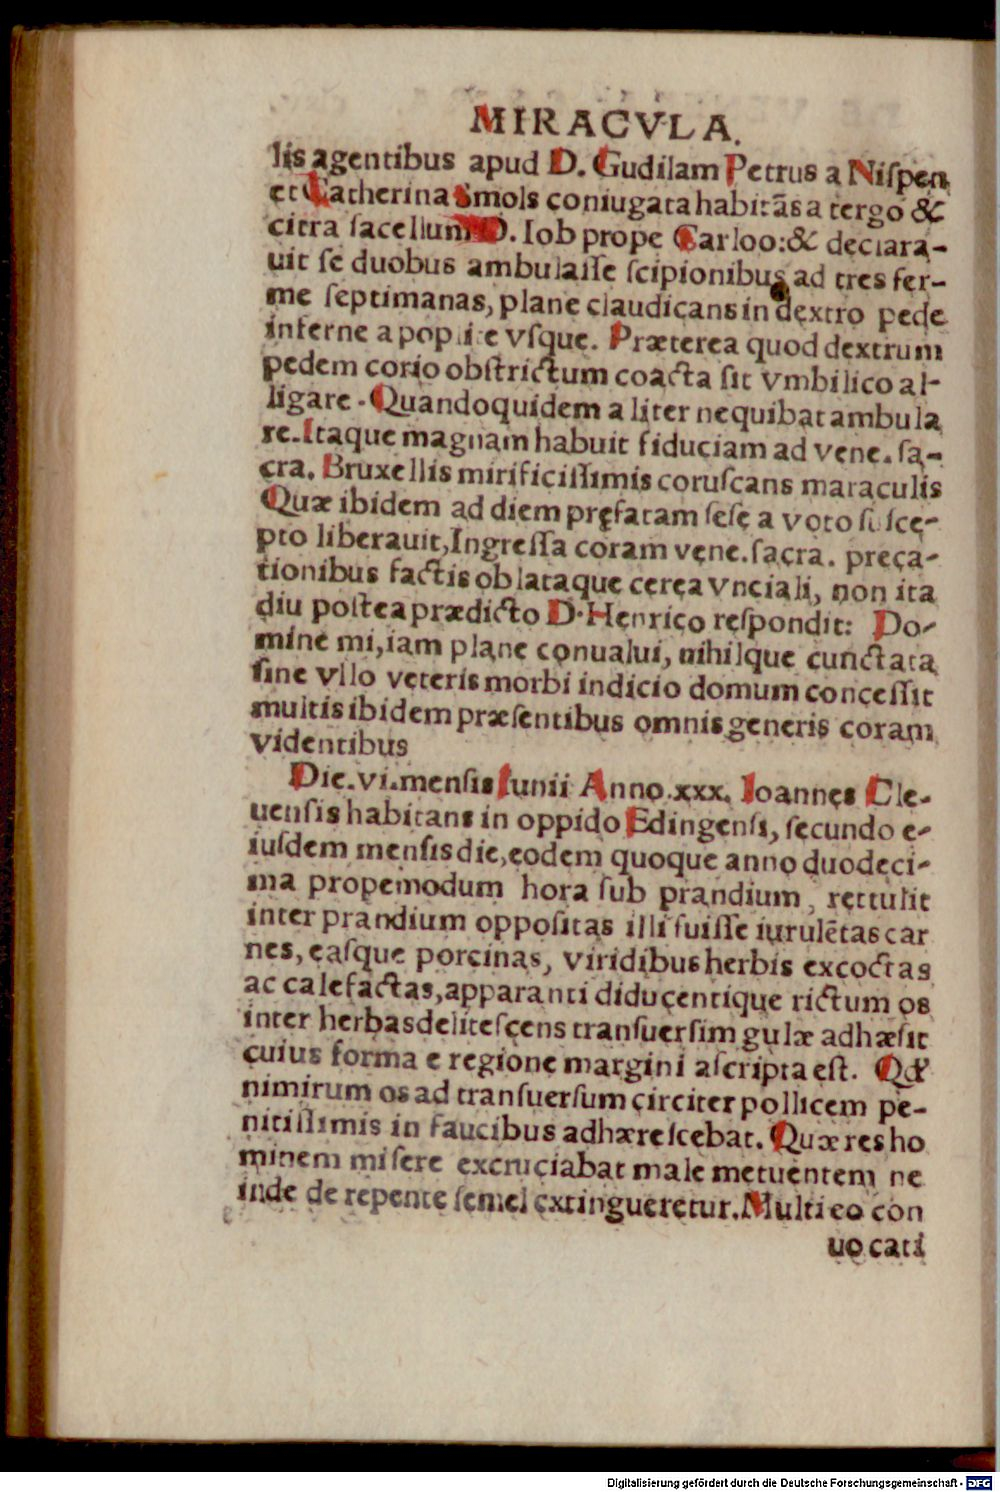 MIRACVLA.
lis agentibus apud D. Gudilam Petrus a Niſpen
et Catherina Smols coniugata habitãs a tergo &
citra ſacellum D. Iob prope Carloo:& declara-
uit ſe duobus ambulaſſe ſcipionibus ad tres fer-
me ſeptimanas, plane claudicans in dextro pede
inferne a poplite vſque. Præterea quod dextrum
pedem corio obſtrictum coacta ſit vmbilico al-
ligare. Quandoquidem aliter nequibat ambula
re. Itaque magnam habuit fiduciam ad vene. ſa-
cra. Bruxellis mirificiſſimis coruſcans maraculis
Quæ ibidem ad diem pręfatam ſeſe a voto ſuſce-
pto liberauit, Ingreſſa coram vene. ſacra. preca-
tionibus factis oblataque cerea vnciali, non ita
diu poſtea prædicto D. Henrico reſpondit: Do-
mine mi, iam plane conualui, nihilque cunctata
ſine vllo veteris morbi indicio domum conceſſit
multis ibidem præſentibus omnis generis coram
videntibus
Die. vi. menſis Iunii Anno. xxx. Ioannes Cle-
uenſis habitans in oppido Edingenſi, ſecundo e-
iuſdem menſis die, eodem quoque anno duodeci-
ma propemodum hora ſub prandium, rettulit
inter prandium oppoſitas illi fuiſſe iurulẽtas car
nes, eaſque porcinas, viridibus herbis excoctas
ac calefactas, apparanti diducentique rictum os
inter herbas deliteſcens tranſuerſim gulæ adhæſit
cuius forma e regione margini aſcripta eſt. Qď
nimirum os ad tranſuerſum circiter pollicem pe-
nitiſſimis in faucibus adhæreſcebat. Quæ res ho
minem miſere excruciabat male metuentem ne
inde de repente ſemel extingueretur. Multi eo con
uocati
Digitalisierung gefördert durch die Deutsche Forschungsgemeinschaft - DFG